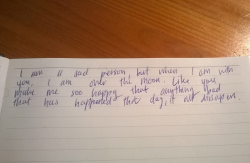 I am a sad person but when I am with
you, I am over the moon. Like you
make me soo happy that anything bad
that has happened that day, it all disappears.